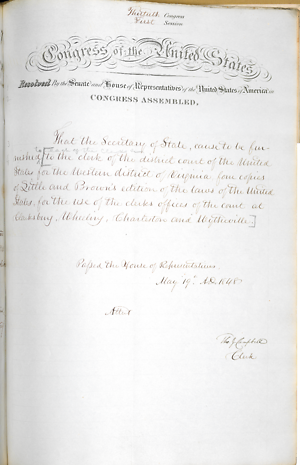 Thirtieth Congress
First Session
Congress of the United States
Resolved By the Senate and House of Representatives of the United States of America in
CONGRESS ASSEMBLED,
That the Secretary of State, cause to be fur-
nished [to the clerk of the district court of the United
States for the Western district of Virginia four copies
of Little and Brown's edition of the laws of the United
States, for the use of the clerks offices of the court at
Clarksburg, Wheeling, Charleston and Wytheville.]
Passed the House of Representatives
May 19th AD. 1848
Attest
Tho J Campbell
Clerk